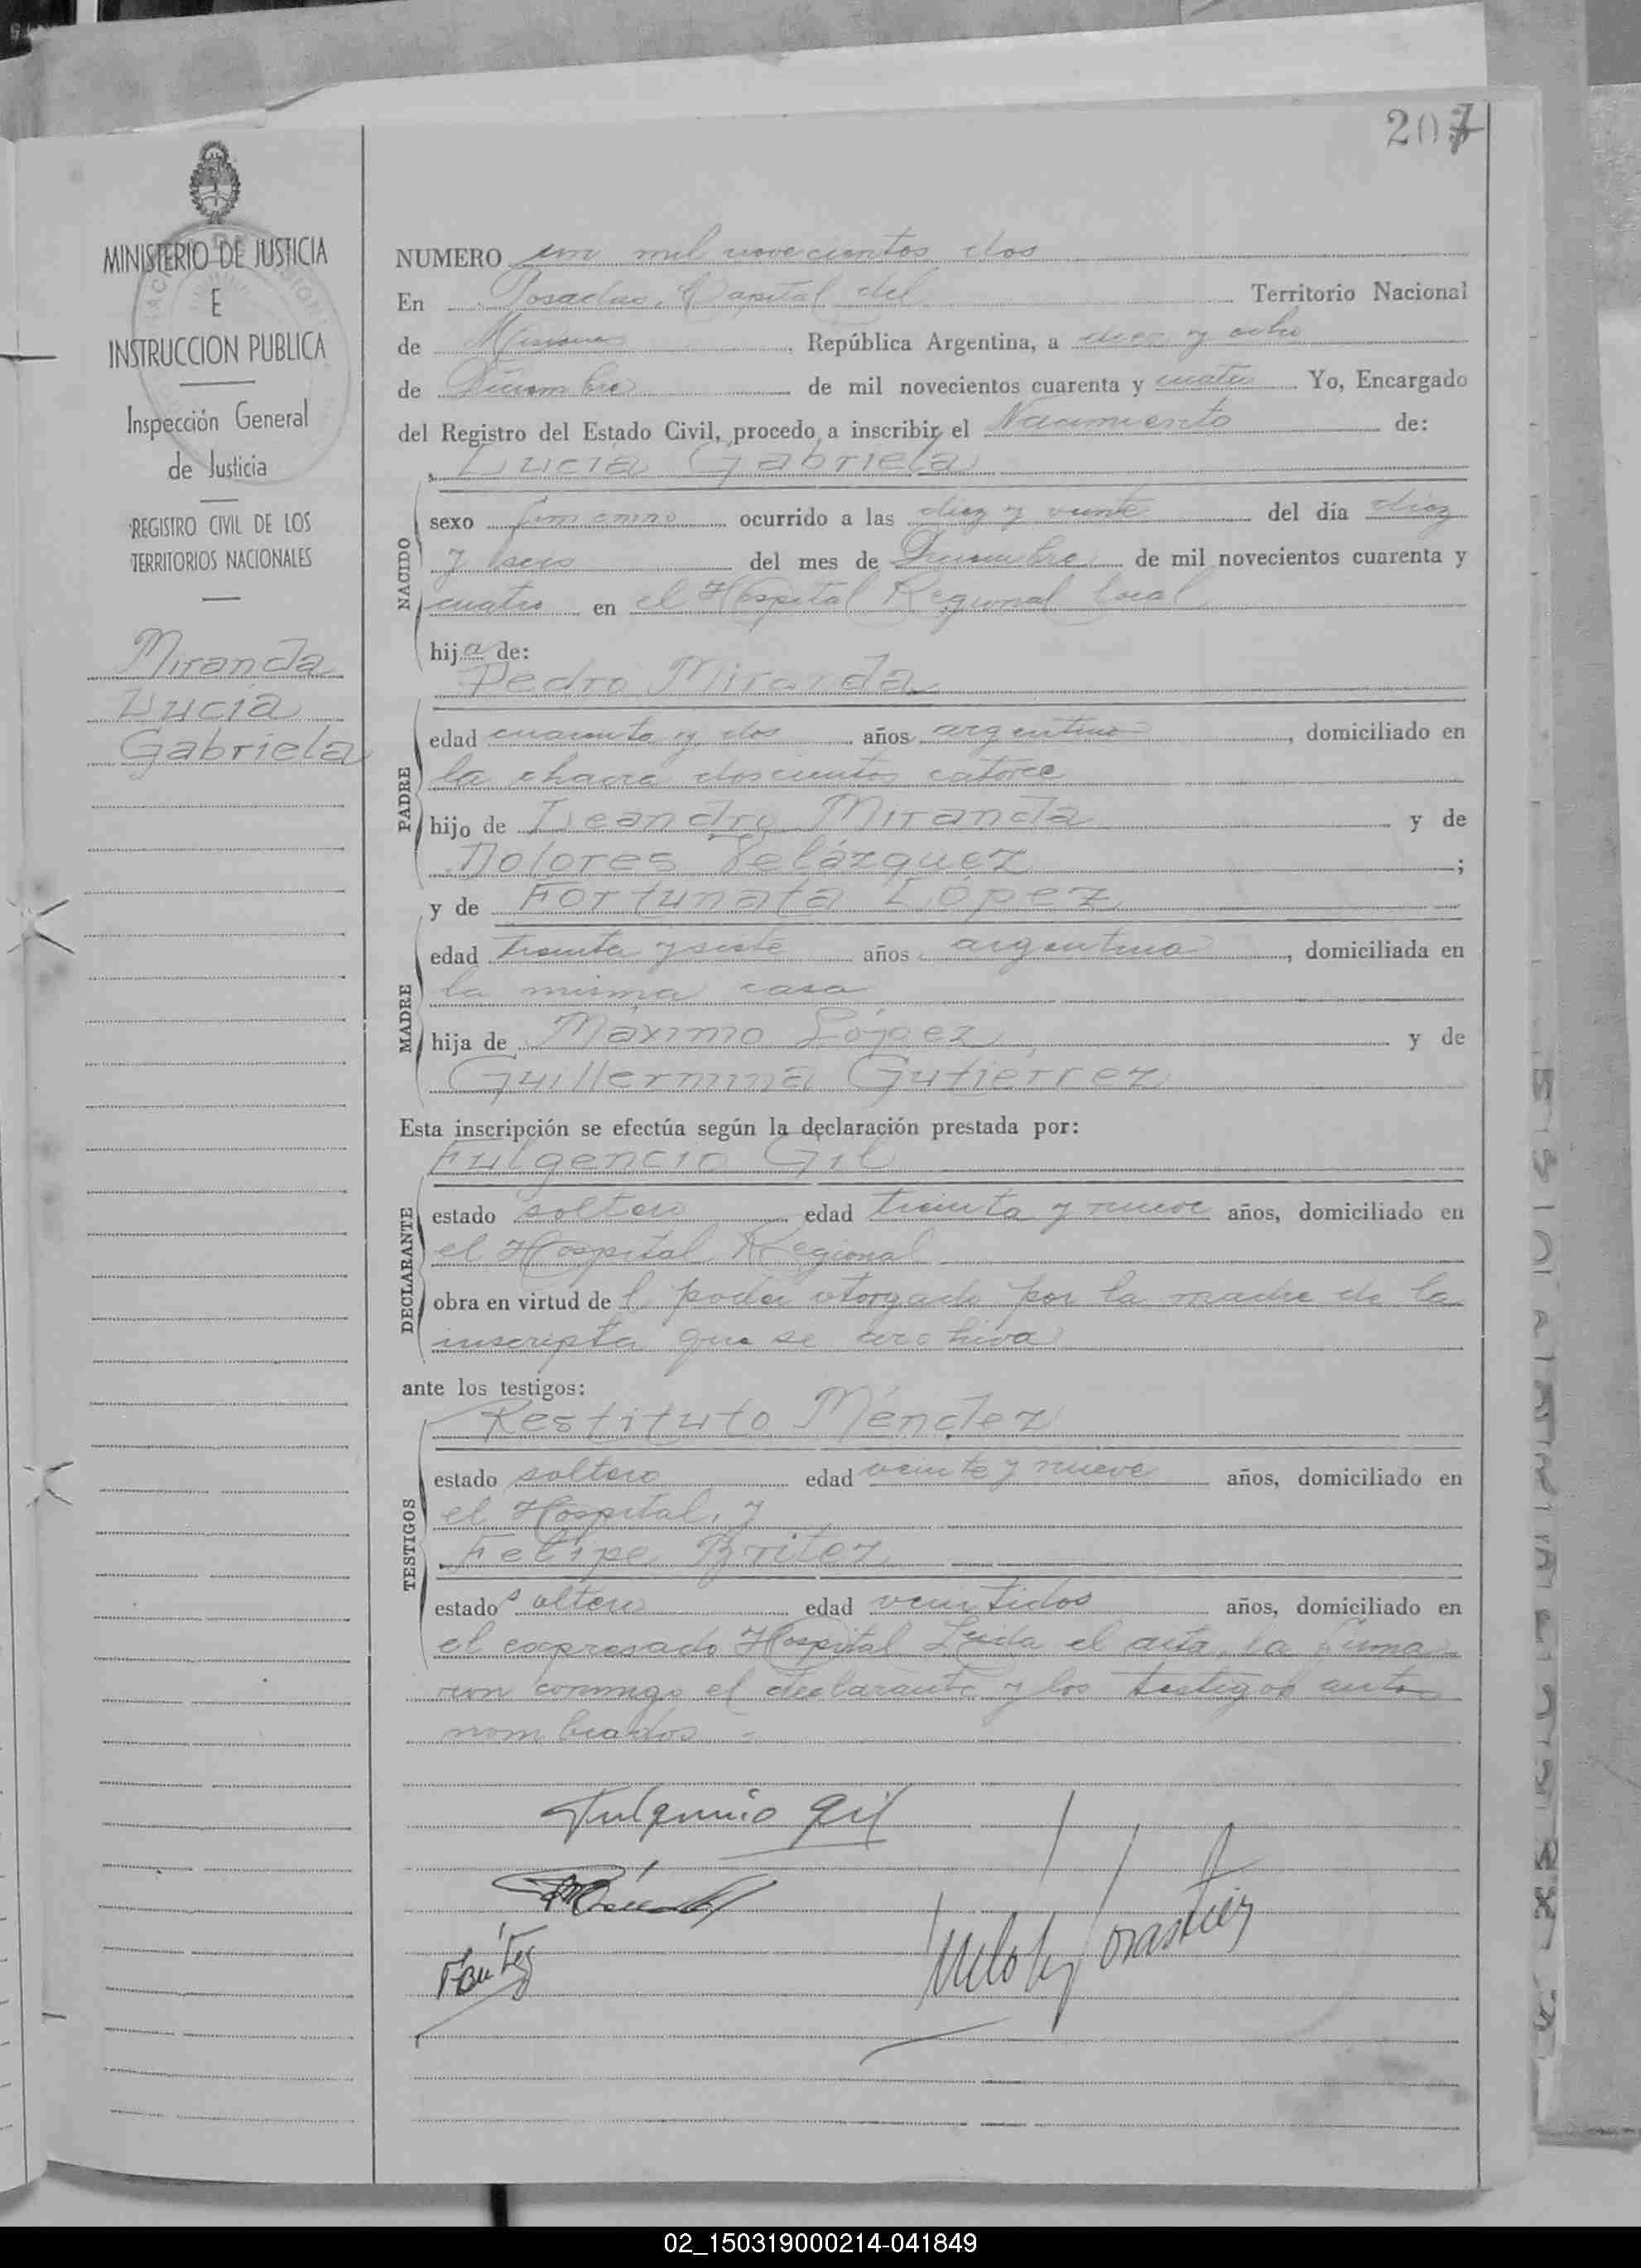 207
MINISTERIO DE JUSTICIA
E
INSTRUCCION PUBLICA
Inspección General
de Justicia
REGISTRO CIVIL DE LOS
TERRITORIOS NACIONALES
Miranda
Lucía
Gabriela
NUMERO un mil novecientos dos
En Posadas, Capital del Territorio Nacional
de Misiones República Argentina, a diez y ocho
de Diciembre de mil novecientos cuarenta y cuatro Yo, Encargado
del Registro del Estado Civil, procedo a inscribir el Nacimiento de:
Lucía Gabriela
NACIDO
sexo femenino ocurrido a las diez y veinte del día diez
y seis del mes de Diciembre de mil novecientos cuarenta y
cuatro en el Hospital Regional local
hija de:
Pedro Miranda
PADRE
edad cuarenta y dos años argentino, domiciliado en
la chacra doscientos catorce
hijo de Leandro Miranda y de
Dolores Velázquez;
y de Fortunata López
MADRE
edad treinta y siete años argentina, domiciliada en
la misma casa
hija de Máximo López y de
Guillermina Gutierrez
Esta inscripción se efectúa según la declaración prestada por:
Fulgencio Gil
DECLARANTE
estado soltero edad treinta y nueve años, domiciliado en
el Hospital Regional
obra en virtud del poder otorgado por la madre de la
inscripta que se archiva
ante los testigos:
Restituto Méndez
TESTIGOS
estado soltero edad veinte y nueve años, domiciliado en
el Hospital, y
Felipe Britez
estado soltero edad veintidos años, domiciliado en
el expresado Hospital Leida el acta, la firma
ron conmigo el declarante y los testigos antes
nombrados =
Fulgencio Gil
FBritez
02_150319000214-041849